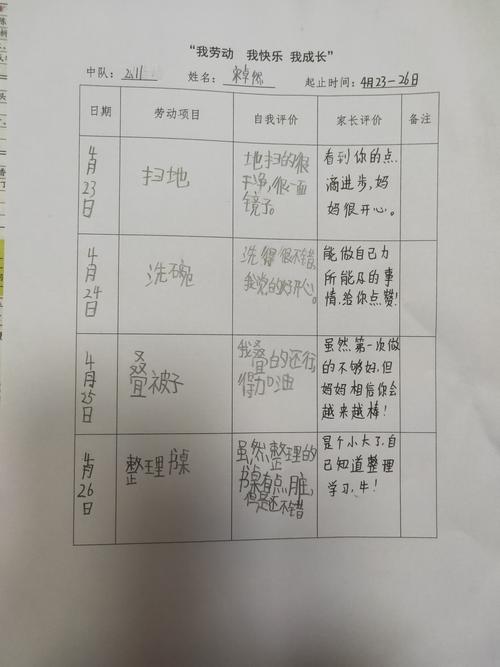 “我劳动 我快乐 我成长”
中队：2.11 姓名： 起止时间：4月23-26日
日期 劳动项目 自我评价 家长评价 备注
4月23日
扫地
地扫的很
干净，很一面
镜子。
看到你的点
滴进步，妈
妈很开心。
4月24日
洗碗
洗得很不错，
我觉的好开心。
能做自己力
所能及的事
情，给你点赞！
4月25日
叠被子
我叠的还行，
得加油
虽然第一次做
的不够好，但
妈妈相信你会
越来越棒！
4月26日
整理书桌
虽然整理的
书桌有点脏，
但是还不错
是个小大了，自
己知道整理
学习，牛！